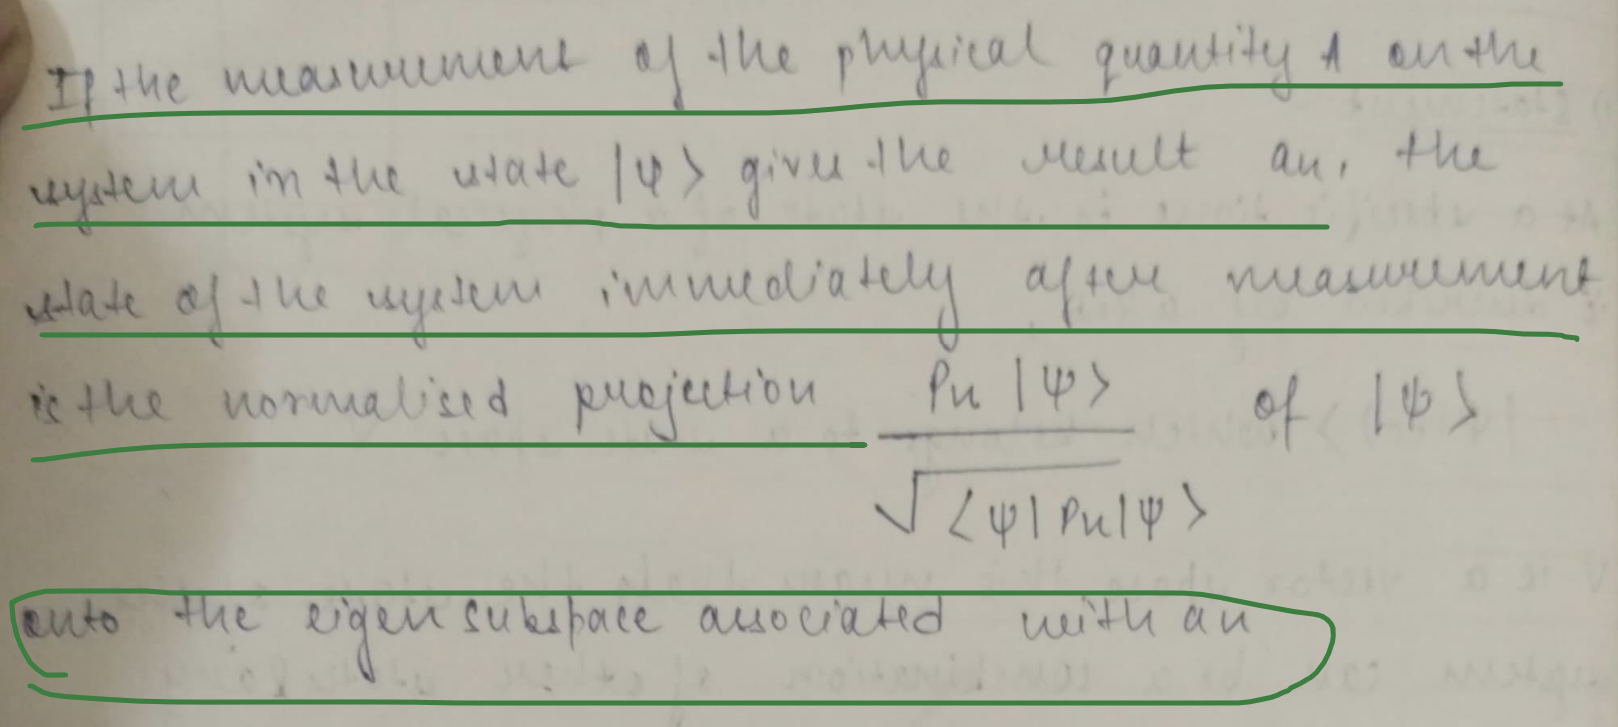 If the measurement of the physical quantity A on the
system in the state |ψ> gives the result an, the
state of the system immediately after measurement
is the normalised projection Pn |ψ> / √<ψ|Pn|ψ> of |ψ>
onto the eigen subspace associated with an